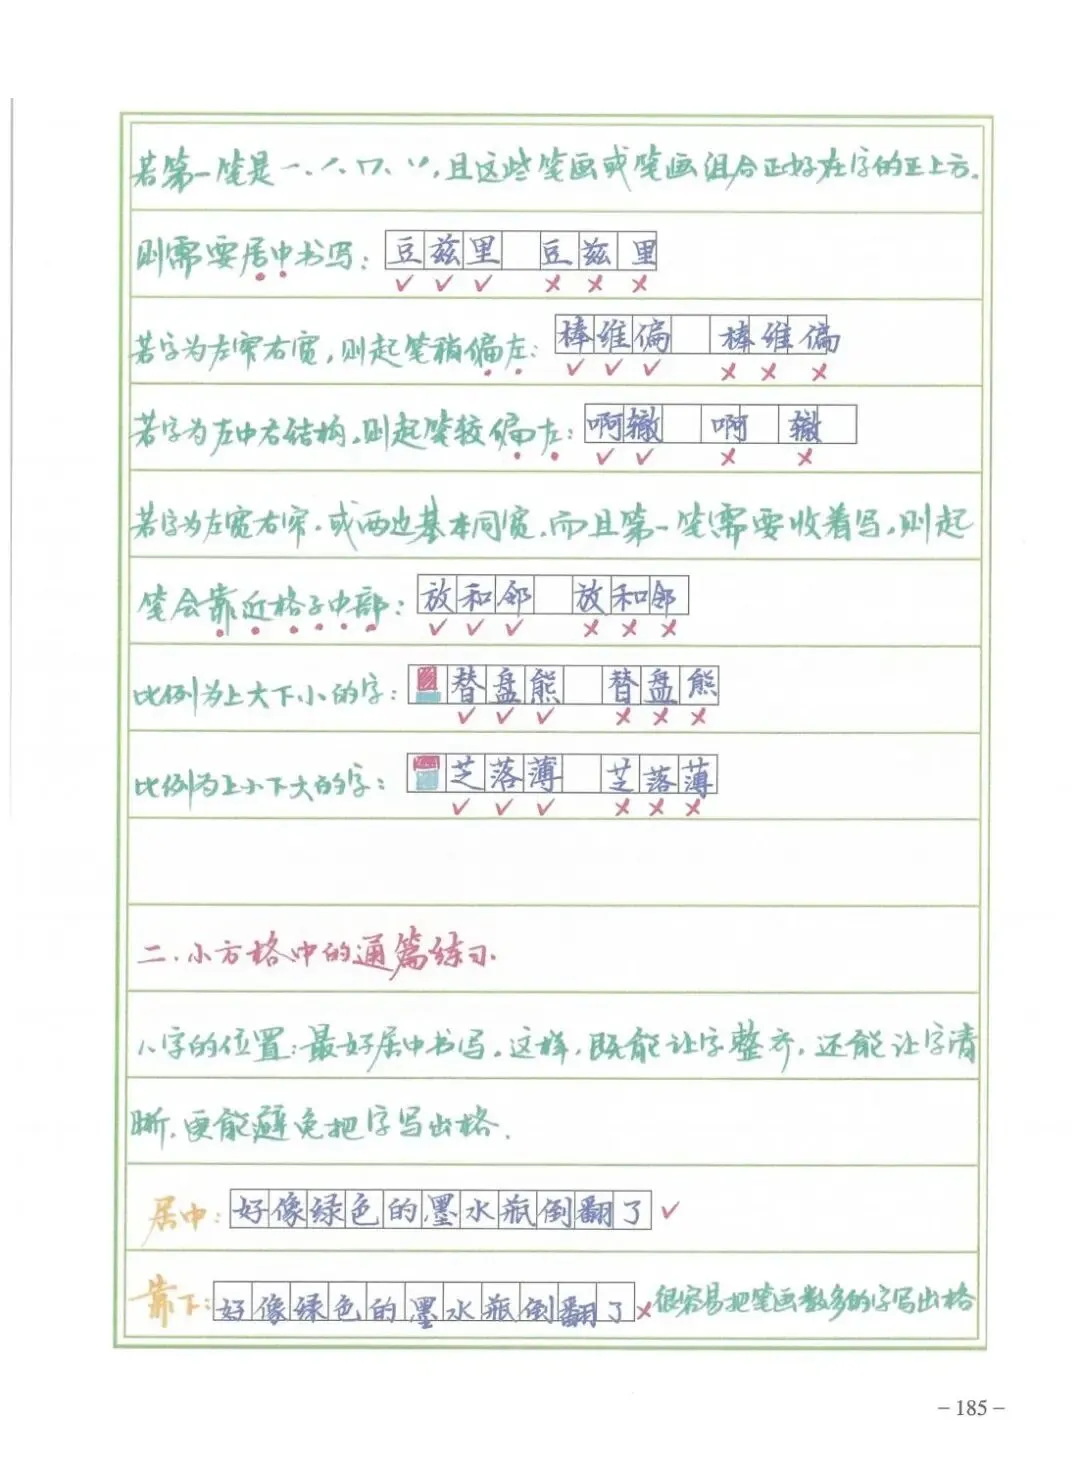 若第一笔是一、丿、冖、丷,且这些笔画或笔画组合正好在字的正上方,
则需要居中书写: 豆兹里 豆兹里
✓ ✓ ✓ ✗ ✗ ✗
若字为左窄右宽,则起笔稍偏左: 棒维偏 棒维偏
✓ ✓ ✓ ✗ ✗ ✗
若字为左中右结构,则起笔较偏左: 啊辙 啊 辙
✓ ✓ ✗ ✗
若字为左宽右窄,或两边基本同宽,而且第一笔需要收着写,则起
笔会靠近格子中部: 放和邻 放和邻
✓ ✓ ✓ ✗ ✗ ✗
比例为上大下小的字: 替盘熊 替盘熊
✓ ✓ ✓ ✗ ✗ ✗
比例为上小下大的字: 芝落薄 芝落薄
✓ ✓ ✓ ✗ ✗ ✗
二、小方格中的通篇练习
1、字的位置:最好居中书写。这样,既能让字整齐,还能让字清
晰,更能避免把字写出格.
居中: 好像绿色的墨水瓶倒翻了 ✓
靠下: 好像绿色的墨水瓶倒翻了 ✗ 很容易把笔画数多的字写出格
– 185 –